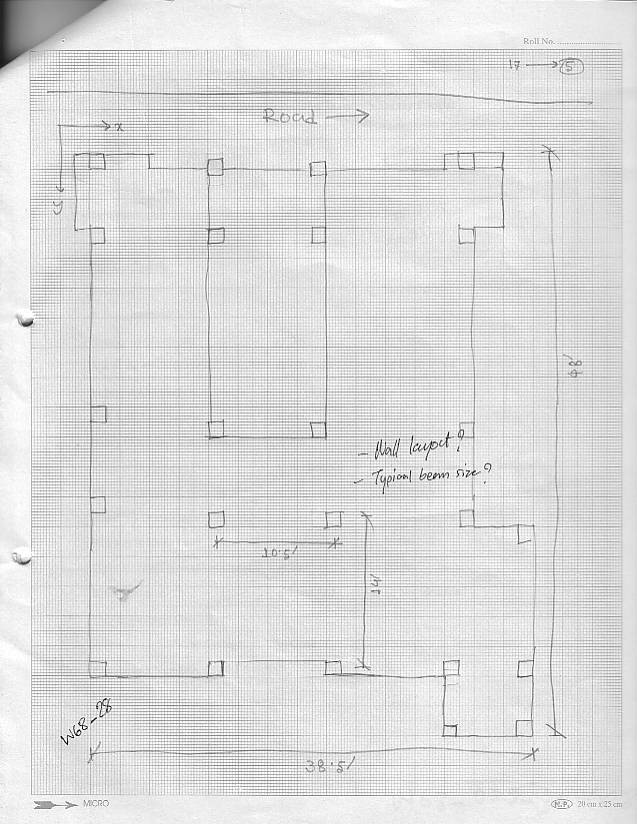 Roll No. ....................
17 → 5
Road →
x
y
48'
- Wall layout?
- Typical beam size?
10.5'
14'
W68-28
38.5'
MICRO
M.P. 20 cm x 25 cm